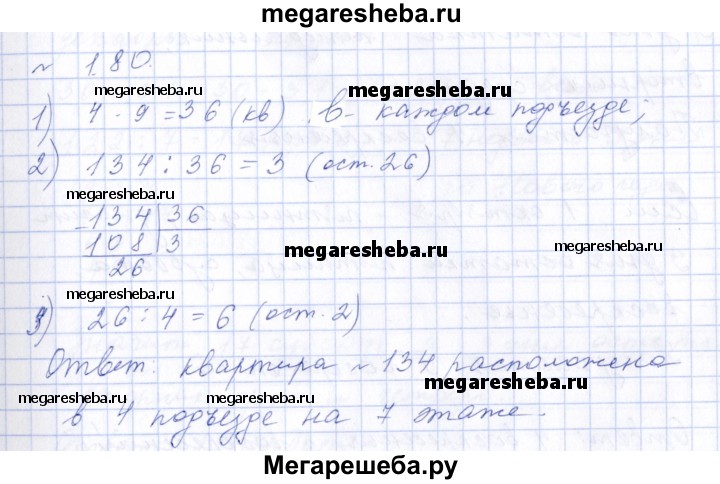 megaresheba.ru
№ 1.80.
megaresheba.ru
megaresheba.ru
1) 4 · 9 = 36 (кв) - в каждом подъезде;
2) 134 : 36 = 3 (ост. 26)
megaresheba.ru
134 | 36
108 | 3
26
megaresheba.ru
megaresheba.ru
3) 26 : 4 = 6 (ост. 2)
Ответ: квартира № 134 расположена
megaresheba.ru
megaresheba.ru
в 4 подъезде на 7 этаже.
Мегарешеба.ру